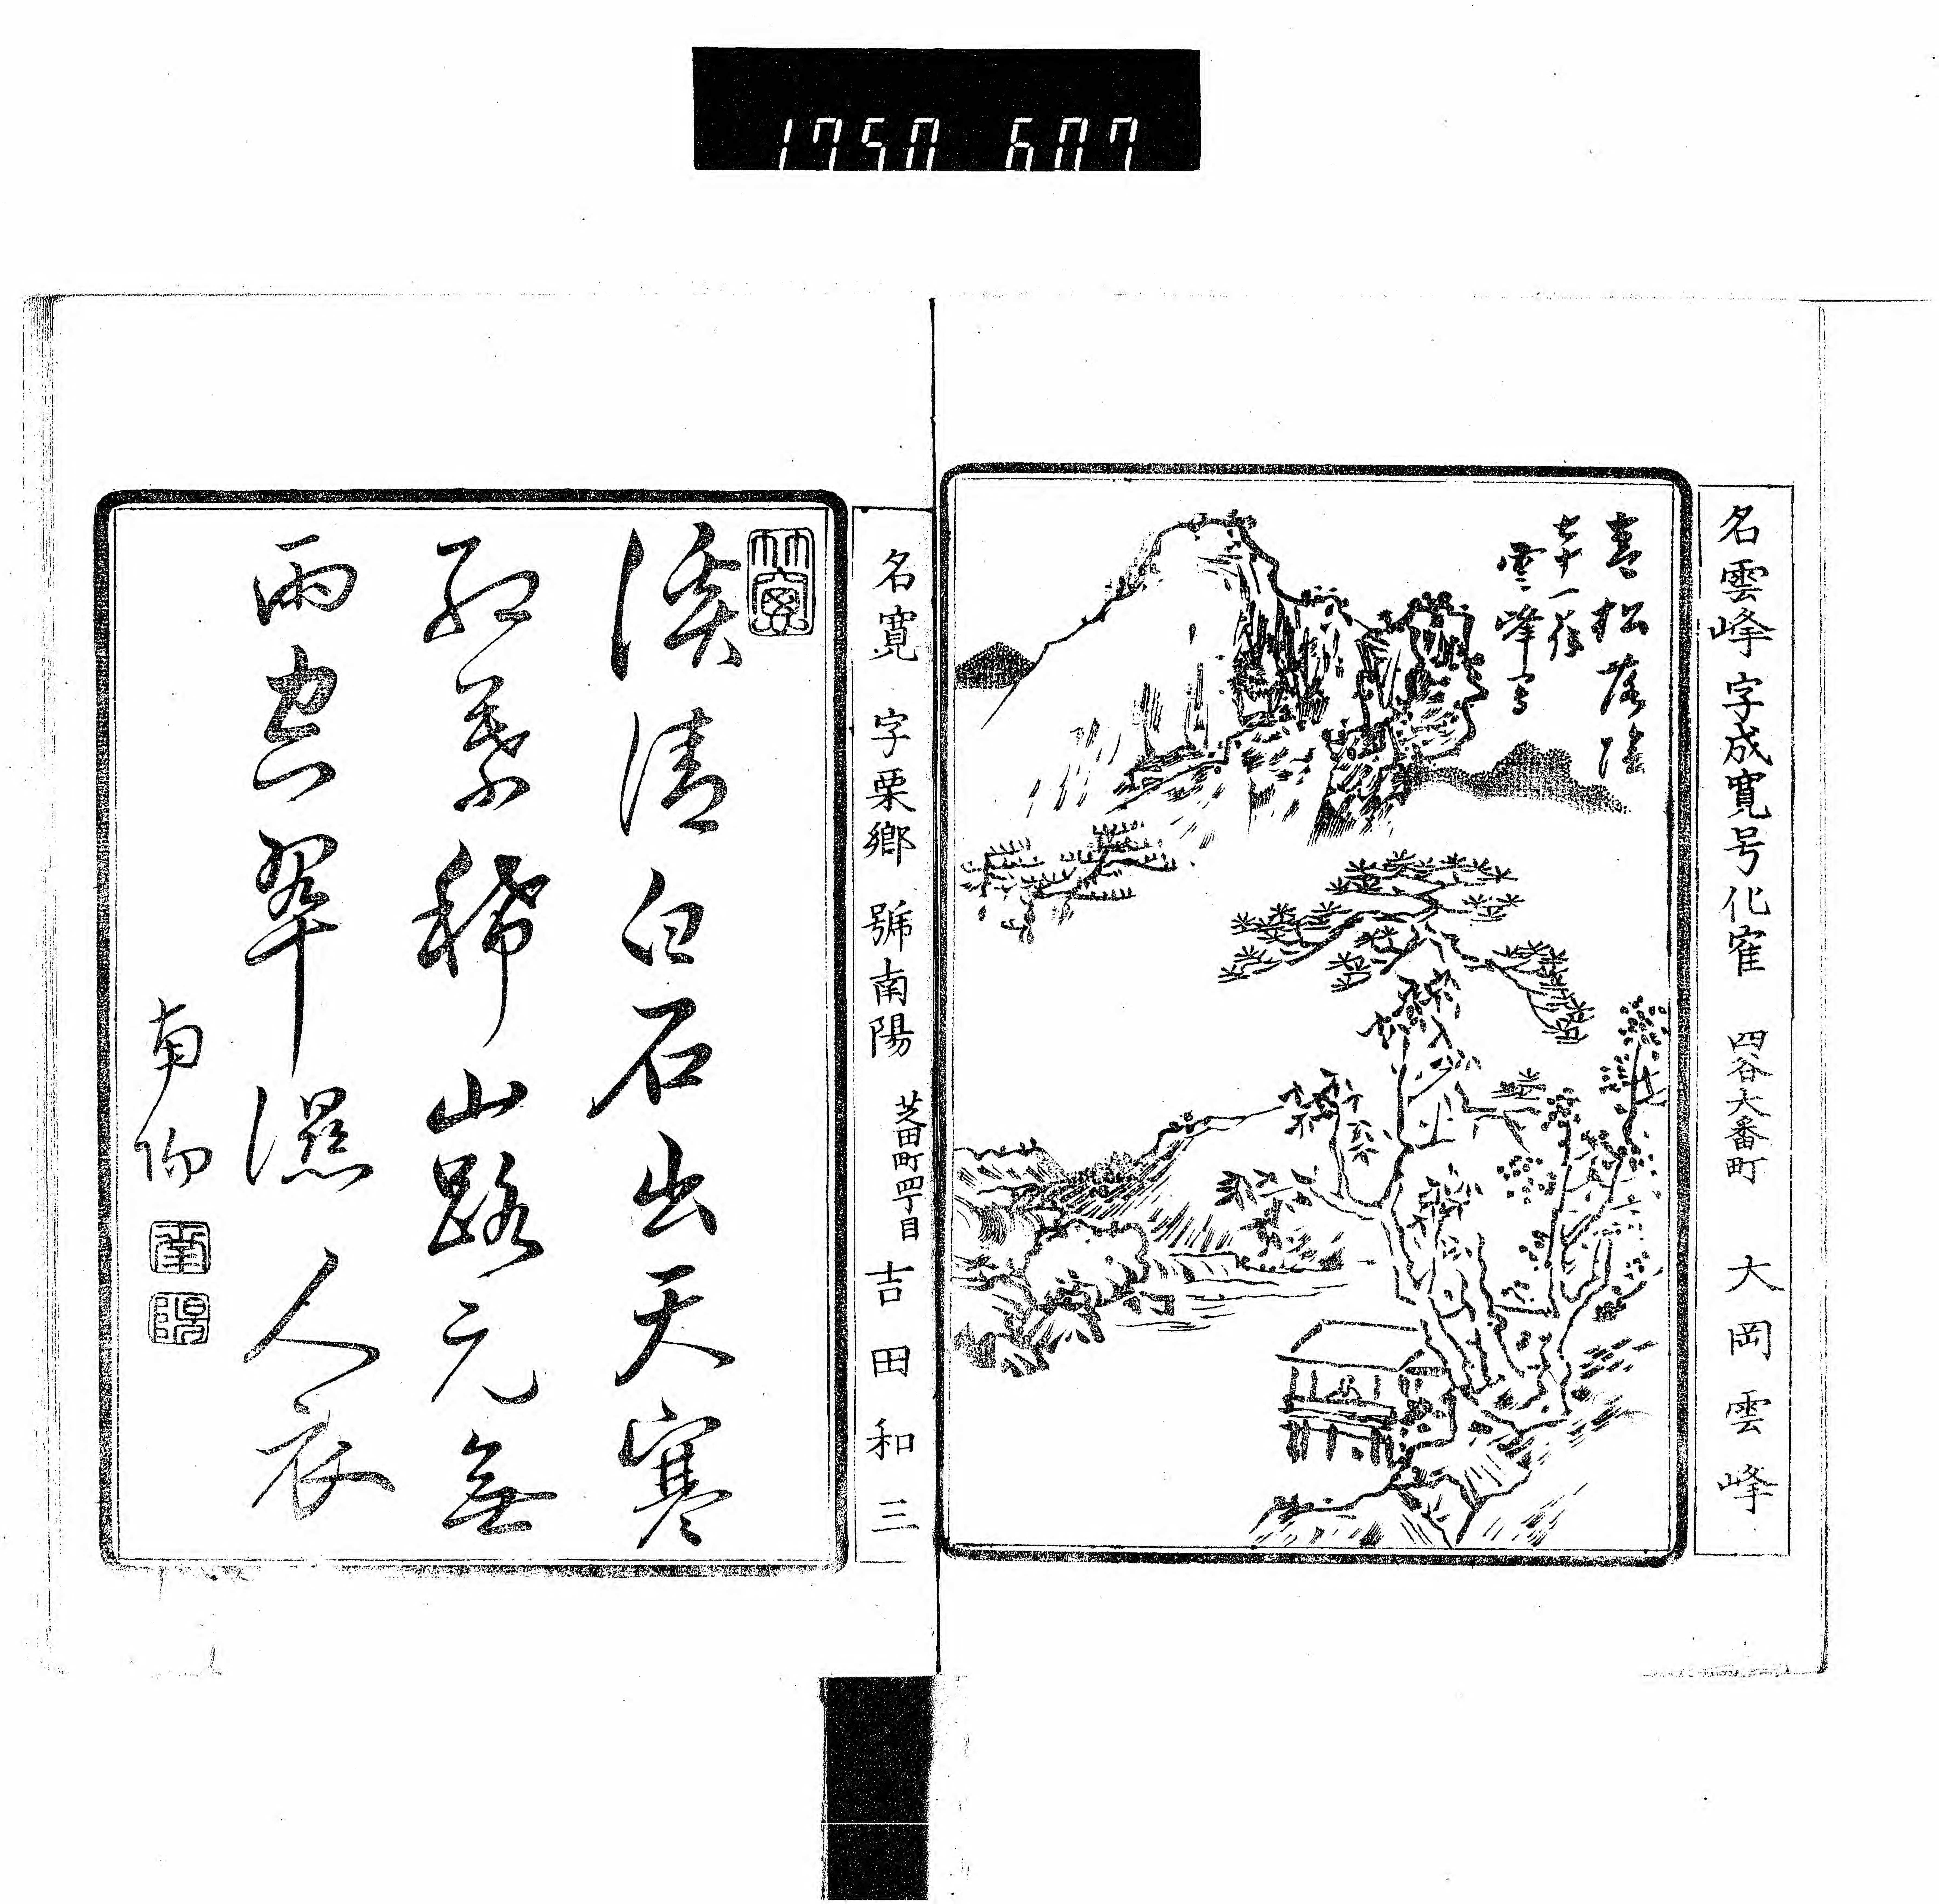 1750 607
名雲峰字成寛号化寉 四谷大番町 大岡雲峰
青松落陰
七十一翁
雲峰写
名寛 字栗郷 號南陽 芝田町四丁目 吉田和三
溪清白石出天寒
紅葉稀山路元無
雨空翠濕人衣
南陽
南
陽